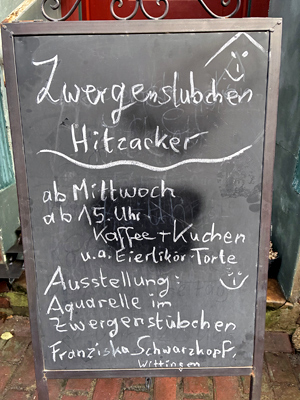 Zwergenstübchen
Hitzacker
ab Mittwoch
ab 15. Uhr
Kaffee + Kuchen
u.a. Eierlikör-Torte
Ausstellung:
Aquarelle im
Zwergenstübchen
Franziska Schwarzkopf,
Wittingen